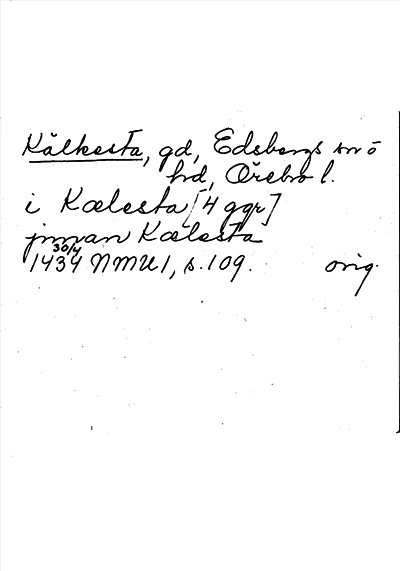 Kälkesta, gd, Edsbergs sn o
hd, Örebro l.
i Kælesta [4 ggr]
jnnan Kælesta
30/4
1434 NMU 1, s. 109. orig.